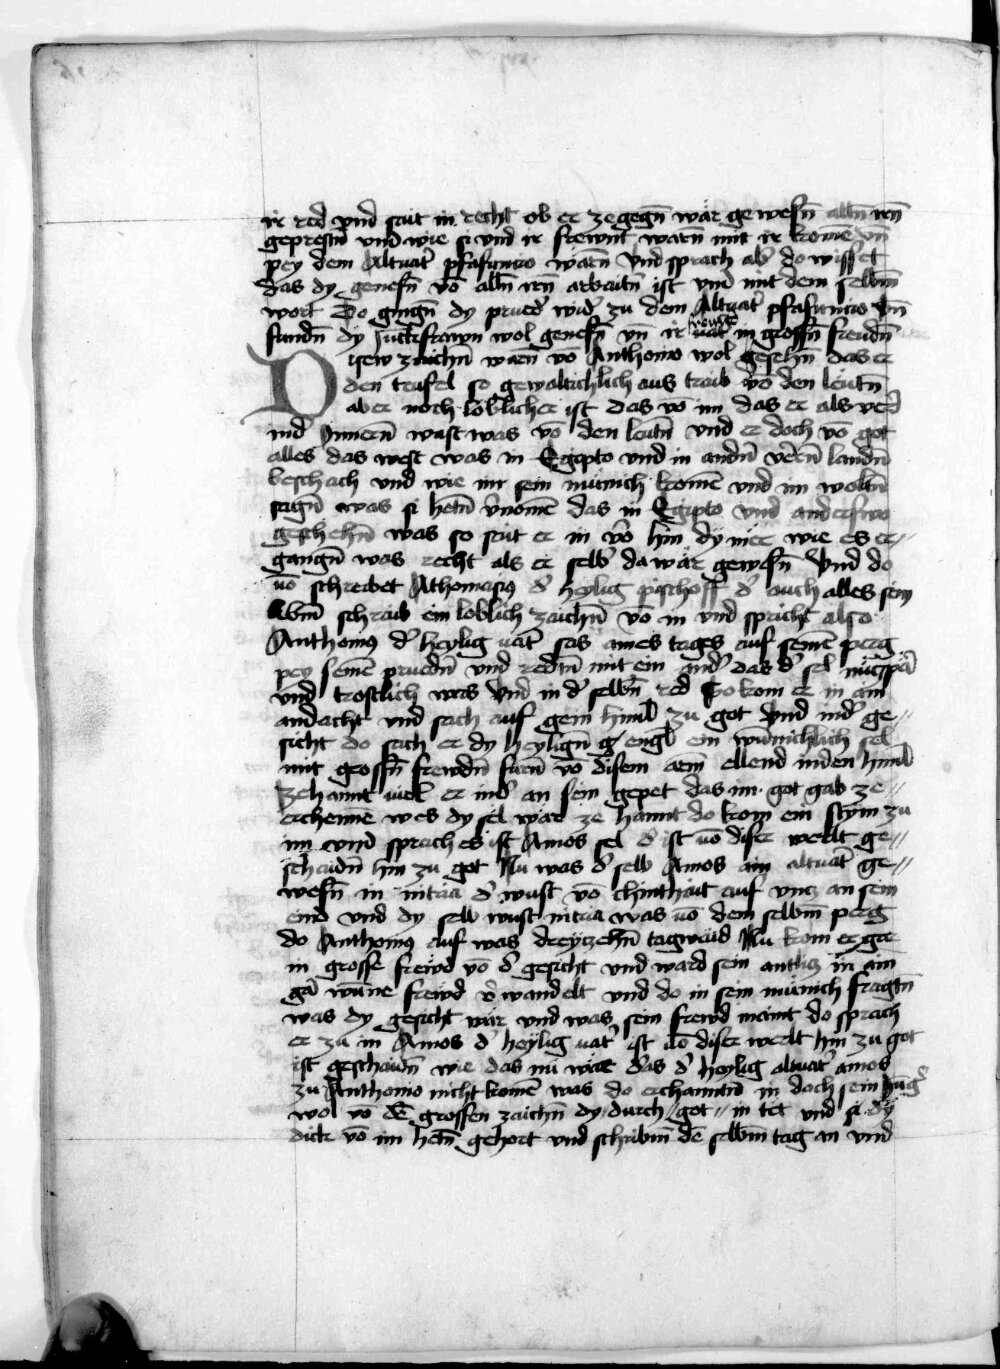 ir red vnd sait in recht ob er zegegñ wär gewesñ allñ irñ
geprestñ vnd wie si vnd ir frewnt warñ mit ir komẽ vñ
pey dem Altuat̾ pfafunio warñ vnd sprach ab̾ do wisset
das dy genesñ võ allñ irñ arbaitñ ist vnd mit dem selbm̃
wort Do gingñ dy prued̾ wid̾ zu dem Altuat̾ pfafunio vñ
fundñ dy Junckfrawn wol genesñ vñ ir frewnt in grossñ freudñ
Disew zaichñ warñ vo Anthonio wol gesehñ das er
den teufel so gewaltichlich aus traib võ den leutñ
aber noch loblicher ist das võ im das er als verr
in d̾ Innerñ wüst was võ den leutñ vnd er doch võ got
alles das west was in Egipto vnd in andñ verrñ landñ
beschach vnd wie im sein münich komẽ vnd im woltñ
sagñ was si hetñ v̾nomẽ das in Egipto vnd anderswo
geschehñ was so sait er in võ hin dy mer wie es er⸗
gangñ was recht als er selb̾ da wär gewesñ Vnd do
uõ schreibet Athonasiꝰ d̾ heylig pischoff d̾ auch alles sein
lebm̃ schraib ein loblich zaichñ võ im vnd spricht also
Anthoniꝰ d̾ heylig uat̾ sas aines tages auf seinẽ perg
pey seinẽ pruedñ vnd redtñ mit ein and̾ das d̾ sel nücz pä
vnd trostlich was Vnd in d̾ selbñ red Do kom er in ain
andacht vnd sach auf gein himl zu got Vnd in d̾ ge⸗
sicht do sach er dy heyligñ engl ein wünichlich sel
mit grossñ frewdñ fürñ võ disem arm̃ ellend in den himl
zehannt viel er nid̾ an sein gepet das im got gab ze⸗
erchenne wes dy sel wär ze hannt do kom ein stym zu
im vnd sprach es ist Amos sel d̾ ist uõ diser werlt ge⸗
schaidñ hin zu got Nu was d̾ selb Amos ain altuat̾ ge⸗
wesñ in nitria d̾ wüst vo chinthait auf vncz an sein
end vnd dy selb wüst nitria was uõ dem selbm̃ perg
do Anthoniꝰ auf was dreyzehñ tagwaid Nu kom er gar
in grosse frewd võ d̾ gesicht vnd ward sein antlicz in ain
gä wunne frewd v̾wandelt vnd do in sein münich fragtñ
was dy gesicht wär vnd was sein frewd maint do sprach
er zu in Amos d̾ heylig uat̾ ist uõ diser werlt hin zu got
ist geschaidñ wie das nu wär das d̾ heylig altuat̾ amos
zu Anthonio nicht komẽ was do erchanntñ in doch sein Jüg̾
wol vo dẽ grossen zaichñ dy durch got in tet vnd si dy
dick võ im hetñ gehort vnd schribm̃ dẽ selbm̃ tag an vnd